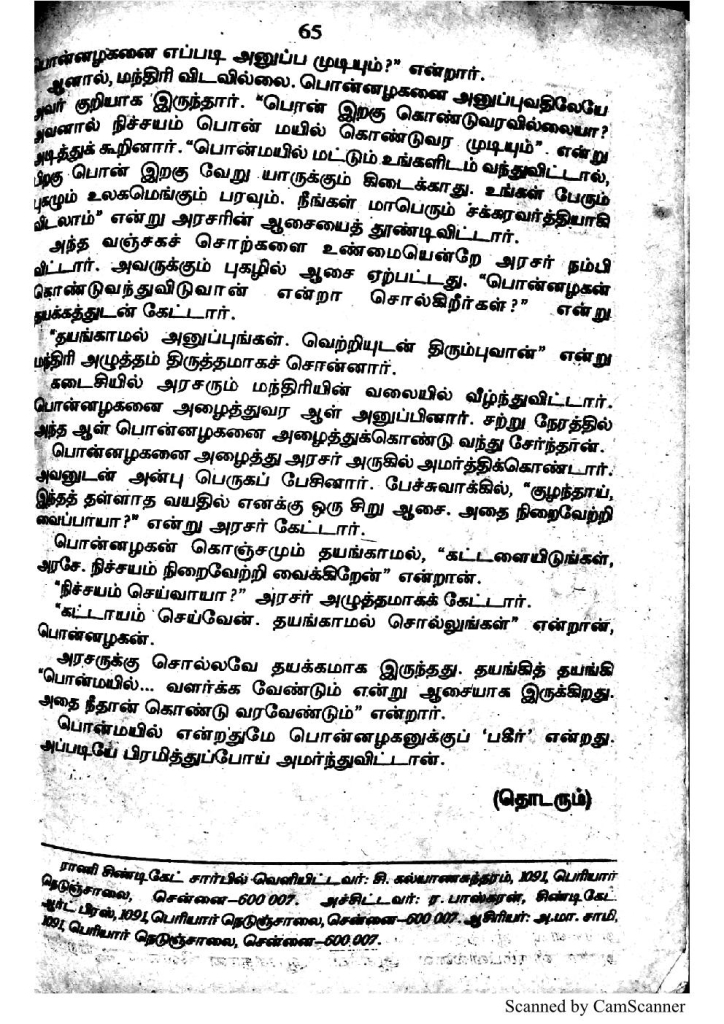 65
பொன்னழகனை எப்படி அனுப்ப முடியும்?” என்றார்.
ஆனால், மந்திரி விடவில்லை. பொன்னழகனை அனுப்புவதிலேயே
அவர் குறியாக இருந்தார். “பொன் இறகு கொண்டுவரவில்லையா?
அவனால் நிச்சயம் பொன் மயில் கொண்டுவர முடியும்”. என்று
அடித்துக் கூறினார். “பொன்மயில் மட்டும் உங்களிடம் வந்துவிட்டால்,
பிறகு பொன் இறகு வேறு யாருக்கும் கிடைக்காது. உங்கள் பேரும்
புகழும் உலகமெங்கும் பரவும். நீங்கள் மாபெரும் சக்கரவர்த்தியாகி
விடலாம்” என்று அரசரின் ஆசையைத் தூண்டிவிட்டார்.
அந்த வஞ்சகச் சொற்களை உண்மையென்றே அரசர் நம்பி
விட்டார். அவருக்கும் புகழில் ஆசை ஏற்பட்டது. “பொன்னழகன்
கொண்டுவந்துவிடுவான் என்றா சொல்கிறீர்கள்?” என்று
தயக்கத்துடன் கேட்டார்.
“தயங்காமல் அனுப்புங்கள். வெற்றியுடன் திரும்புவான்” என்று
மந்திரி அழுத்தம் திருத்தமாகச் சொன்னார்.
கடைசியில் அரசரும் மந்திரியின் வலையில் வீழ்ந்துவிட்டார்.
பொன்னழகனை அழைத்துவர ஆள் அனுப்பினார். சற்று நேரத்தில்
அந்த ஆள் பொன்னழகனை அழைத்துக்கொண்டு வந்து சேர்ந்தான்.
பொன்னழகனை அழைத்து அரசர் அருகில் அமர்த்திக்கொண்டார்.
அவனுடன் அன்பு பெருகப் பேசினார். பேச்சுவாக்கில், “குழந்தாய்,
இந்தத் தள்ளாத வயதில் எனக்கு ஒரு சிறு ஆசை. அதை நிறைவேற்றி
வைப்பாயா?” என்று அரசர் கேட்டார்.
பொன்னழகன் கொஞ்சமும் தயங்காமல், “கட்டளையிடுங்கள்,
அரசே. நிச்சயம் நிறைவேற்றி வைக்கிறேன்” என்றான்.
“நிச்சயம் செய்வாயா?” அரசர் அழுத்தமாகக் கேட்டார்.
“கட்டாயம் செய்வேன். தயங்காமல் சொல்லுங்கள்” என்றான்,
பொன்னழகன்.
அரசருக்கு சொல்லவே தயக்கமாக இருந்தது. தயங்கித் தயங்கி
“பொன்மயில்... வளர்க்க வேண்டும் என்று ஆசையாக இருக்கிறது.
அதை நீதான் கொண்டு வரவேண்டும்” என்றார்.
பொன்மயில் என்றதுமே பொன்னழகனுக்குப் ‘பகீர்’ என்றது.
அப்படியே பிரமித்துப்போய் அமர்ந்துவிட்டான்.
(தொடரும்)
ராணி சிண்டிகேட் சார்பில் வெளியிட்டவர்: சி. கல்யாணசுந்தரம், 1091, பெரியார்
நெடுஞ்சாலை, சென்னை–600 007. அச்சிட்டவர்: ர. பாஸ்கரன், சிண்டிகேட்
ஆர்ட் பிரஸ், 1091, பெரியார் நெடுஞ்சாலை, சென்னை–600 007. ஆசிரியர்: அ.மா. சாமி,
1091, பெரியார் நெடுஞ்சாலை, சென்னை–600 007.
Scanned by CamScanner